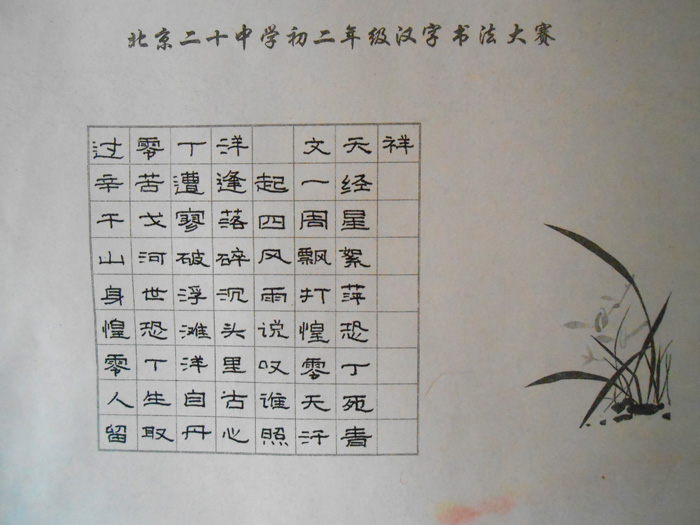 北京二十中学初二年级汉字书法大赛
过零丁洋 文天祥
辛苦遭逢起一经
干戈寥落四周星
山河破碎风飘絮
身世浮沉雨打萍
惶恐滩头说惶恐
零丁洋里叹零丁
人生自古谁无死
留取丹心照汗青